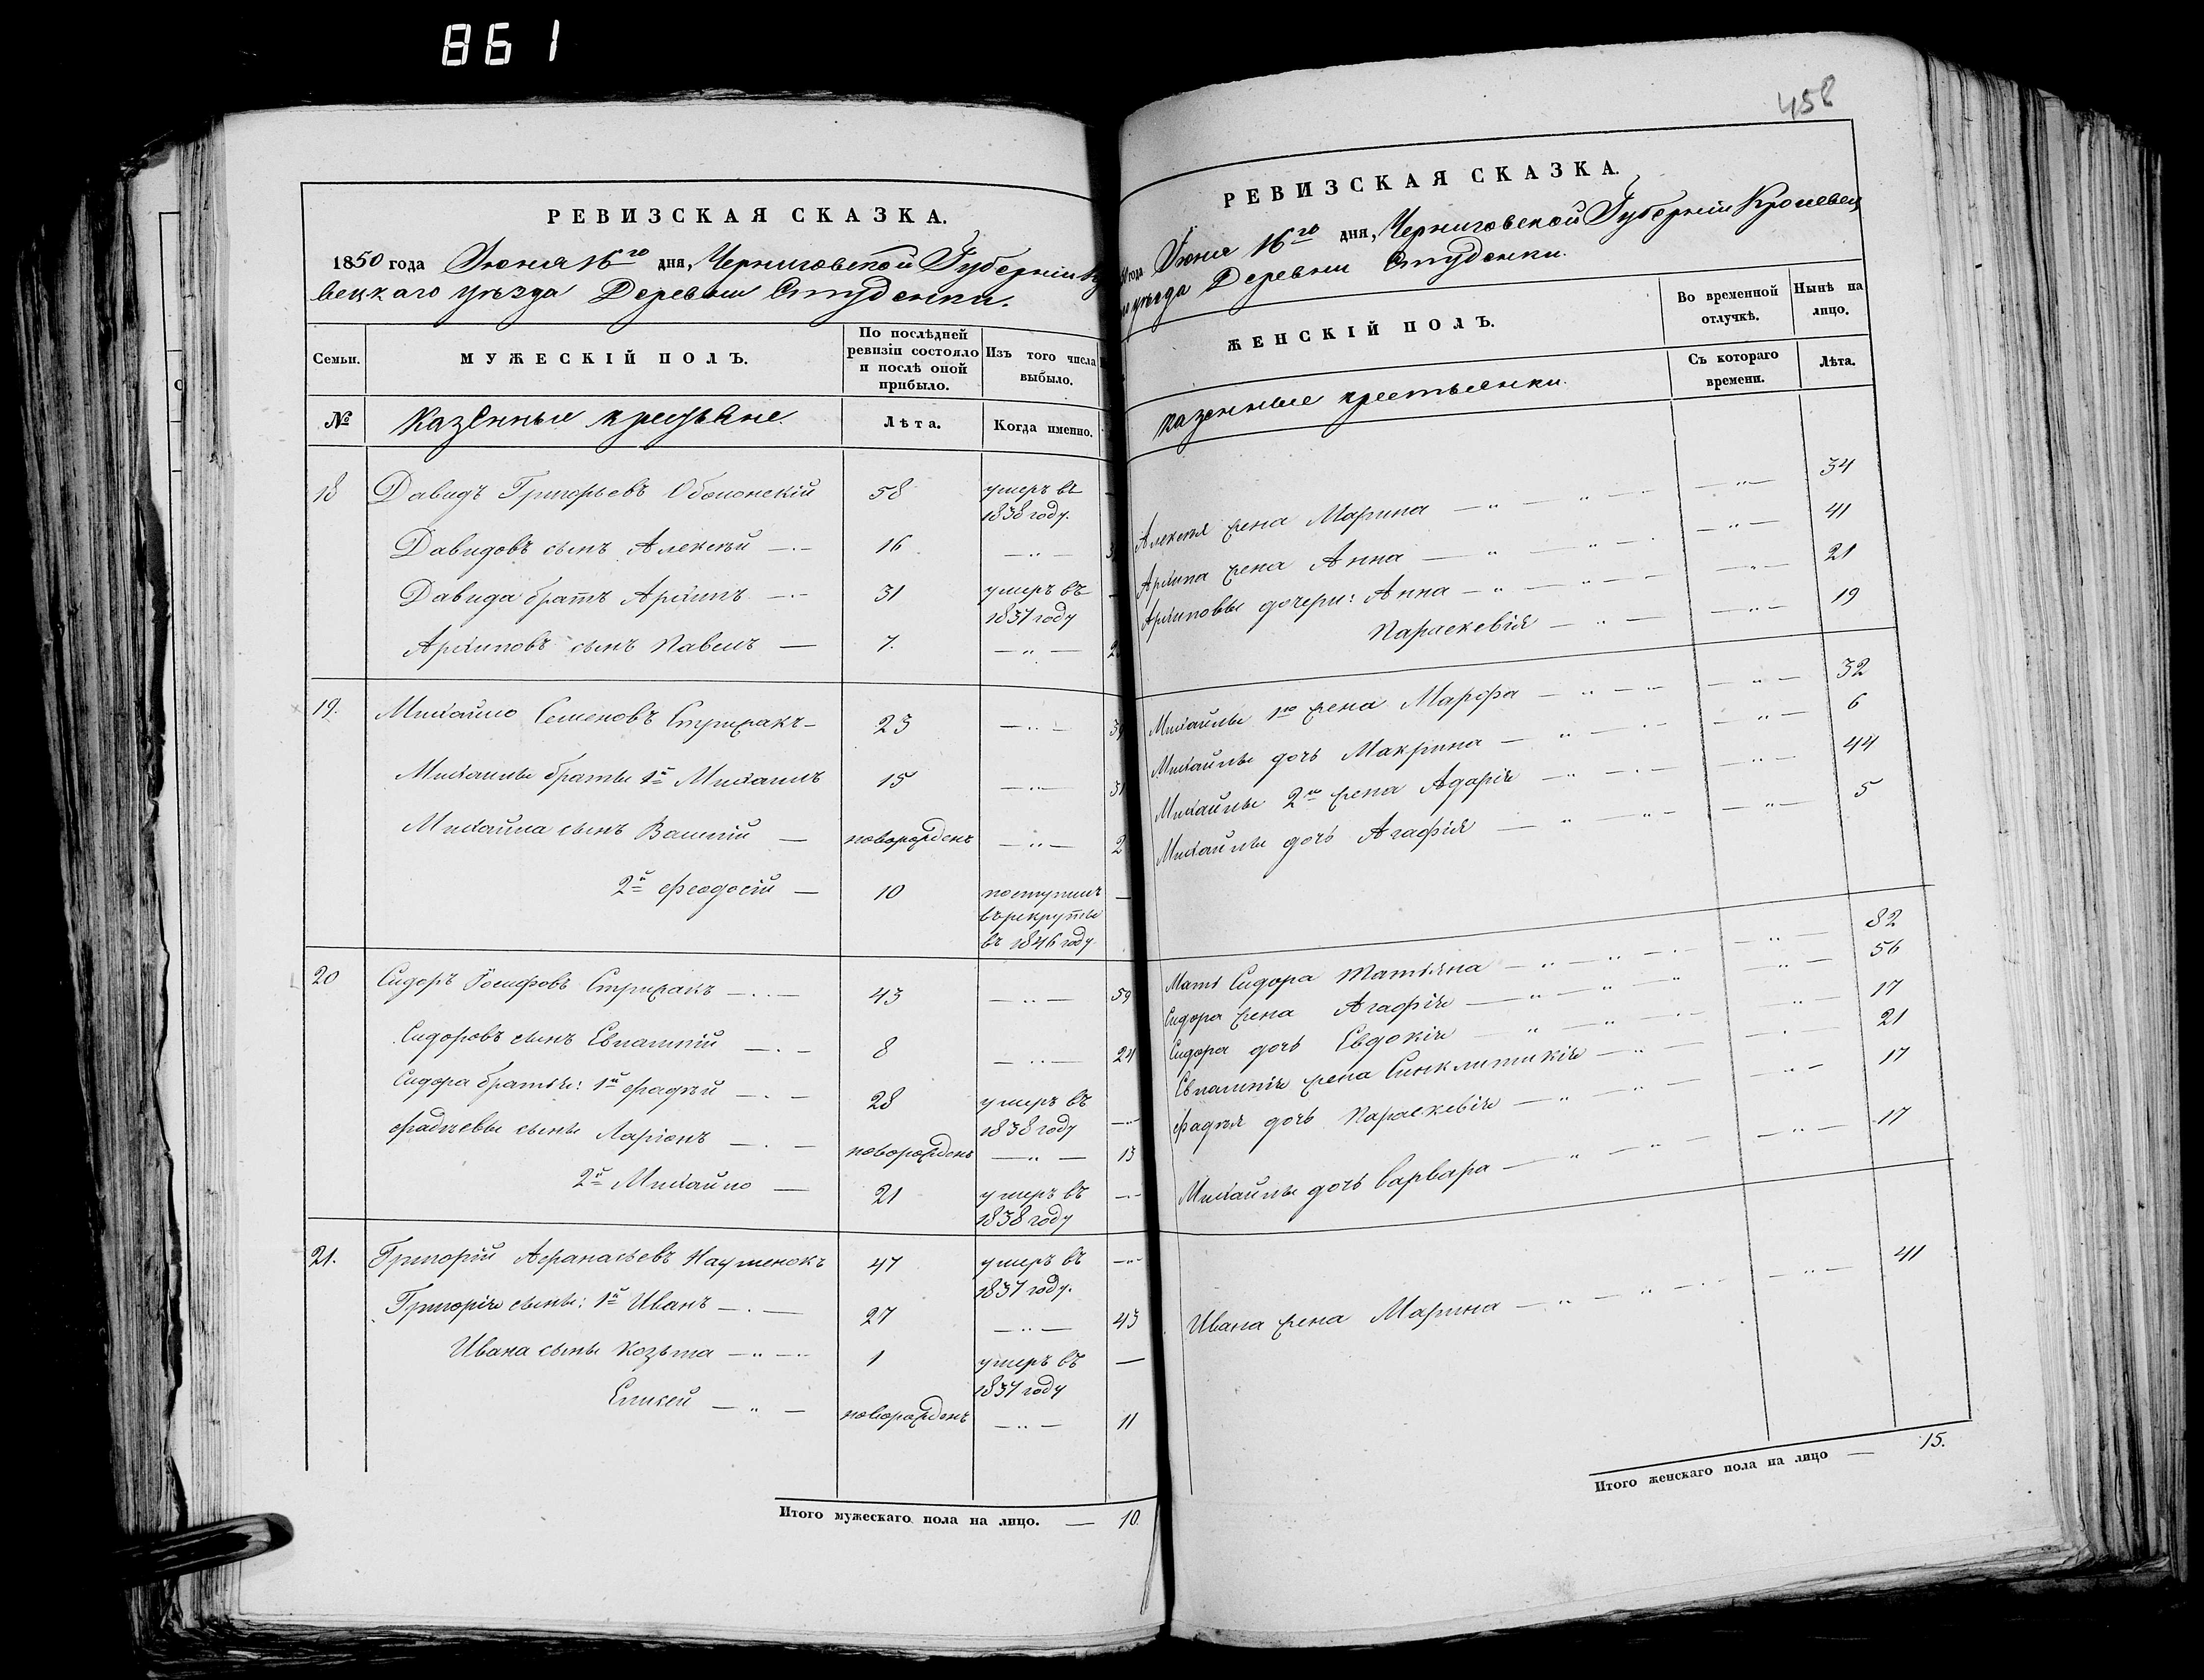 861
РЕВИЗСКАЯ СКАЗКА.
1850 года Июня 16го дня, Черниговской Губерніи
вецкаго уѣзда Деревни Студенки.
Семьи.
МУЖЕСКІЙ ПОЛЪ.
По послѣдней
ревизіи состояло
и послѣ оной
прибыло.
Изъ того числа
выбыло.
№
Казенные крестьяне.
Лѣта.
Когда именно.
18 Давидъ Григорьевъ Оболонскій 58 умеръ въ —
1838 году.
Давидовъ сынъ Алексѣй — 16 — „ — 3
Давида братъ Архипъ — 31 умеръ въ —
1837 году
Архиповъ сынъ Павелъ — 7. — „ — 2
19. Михайло Семеновъ Стрижакъ — 23 — „ — 39
Михайлы братья 1й Михаилъ 15 — „ — 31
Михаила сынъ Василій — новорожденъ — „ — 2
2й Феодосій — 10 поступилъ —
въ рекруты
въ 1846 году.
20 Сидоръ Іосифовъ Стрижакъ — 43 — „ — 59
Сидоровъ сынъ Евлампій — 8 — „ — 24
Сидора братья: 1й Фадѣй — 28 умеръ въ
1838 году —
Фадѣевы сыны Ларіонъ — новорожденъ — „ — 13
2й Михайло — 21 умеръ въ —
1838 году
21. Григорій Афанасьевъ Науменокъ 47 умеръ въ —
1837 году.
Григорія сыны: 1й Иванъ — 27 — „ — 43
Ивана сыны Козьма — „ — 1 умеръ въ —
1837 году
Елисей — „ — новорожденъ — „ — 11
Итого мужескаго пола на лицо. — 10
458
РЕВИЗСКАЯ СКАЗКА.
года Июня 16го дня, Черниговской Губерніи Кролевец
уѣзда Деревни Студенки.
ЖЕНСКІЙ ПОЛЪ.
Во временной
отлучкѣ.
Нынѣ на
лицо.
Съ котораго
времени.
Лѣта.
казенные крестьянки.
Алексѣя жена Марина — „ — „ — — „ — 34
Архипа жена Анна — „ — „ — — „ — 41
Архиповы дочери: Анна — „ — „ — — „ — 21
Параскевія — „ — — „ — 19
Михайлы 1го жена Марфа — „ — „ — „ — 32
Михайлы дочь Макрина — „ — — „ — 6
Михайлы 2го жена Адарія — „ — — „ — 44
Михайлы дочь Агафія — „ — „ — — „ — 5
Мать Сидора Татьяна — „ — „ — „ — 82
Сидора жена Агафія — „ — „ — „ — 56
Сидора дочь Евдокія — „ — „ — „ — 17
Евлампія жена Синклитикія — „ — — 21
Фадѣя дочь Параскевія — „ — „ — „ — 17
Михайлы дочь Варвара — „ — „ — — „ — 17
Ивана жена Марина — „ — „ — — „ — 41
Итого женскаго пола на лицо — 15.